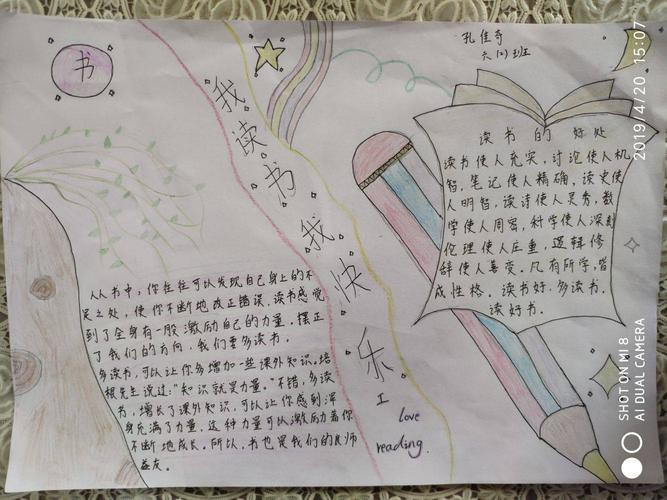 书
孔佳奇
六(2)班
我读书我快乐
I
love
reading.
读书的好处
读书使人充实，讨论使人机
智，笔记使人精确，读史使
人明智，读诗使人灵秀，数
学使人周密，科学使人深刻
伦理使人庄重，逻辑修
辞使人善变。凡有所学，皆
成性格。读书好，多读书，
读好书。
从书中，你往往可以发现自己身上的不
足之处，使你不断地改正错误，读书感觉
到了全身有一股激励自己的力量。摆正
了我们的方向，我们要多读书。
多读书，可以让你多增加一些课外知识。培
根先生说过："知识就是力量。"不错，多读
书，增长了课外知识，可以让你感到浑
身充满了力量，这种力量可以激励着你
不断地成长。所以，书也是我们的良师
益友。
2019/4/20 15:07
SHOT ON MI 8
AI DUAL CAMERA